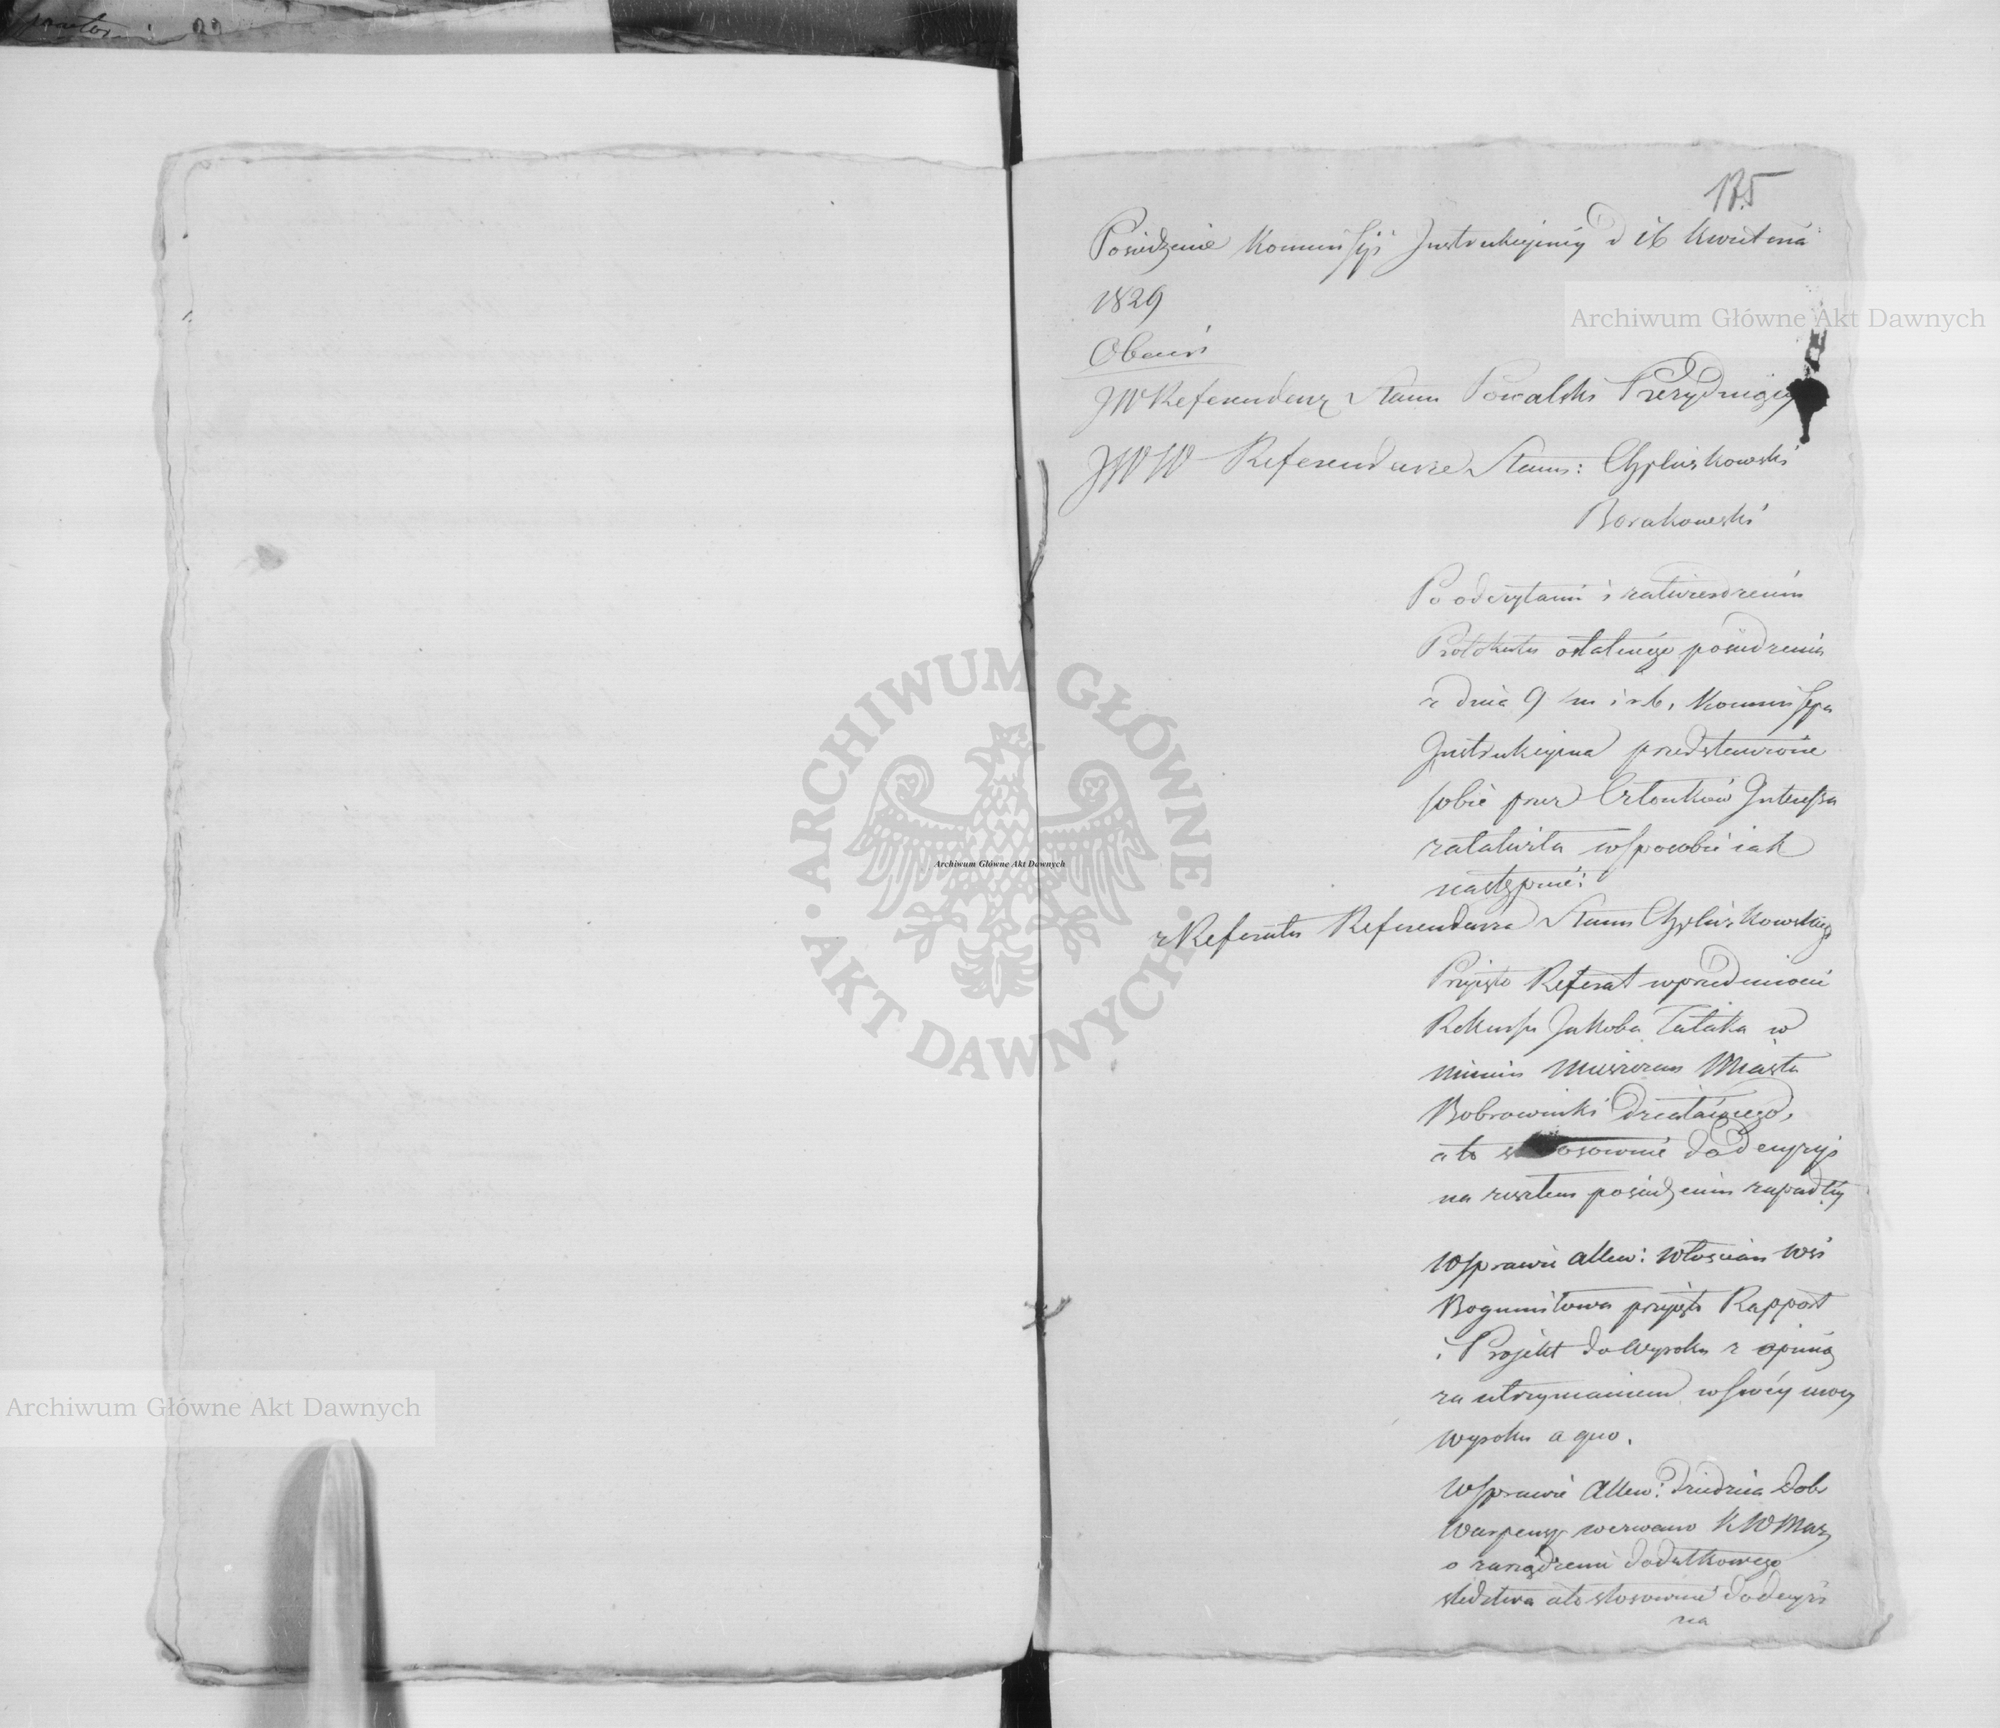 175
Posiedzenie Kommissyi Instrukcyiney d 16 Kwietnia
1829
Obecni
JW Referendarz Stanu Prezyduiący
JWW Referendarze Stanu:
Borakowski
Po odczytaniu i zatwierdzeniu
Protokułu ostatniego posiedzenia
z dnia 9 m i r b, Kommissya
Instrukcyina przedstawione
sobie przez Członków Interessa
załatwiła w sposobie iak
następuie:
z Referatu Referendarza Stanu
Przyięto Referat w przedmiocie
Rekursu Jakoba w
imieniu Mieszczan Miasta
Bobrownik działaiącego,
a to stosownie do Decyzyi
na zeszłem posiedzeniu zapadłéy
W sprawie Allew: Włościan Wsi
Bogumiłowa przyięto Rapport
i Projekt do Wyroku z opinią
za utrzymaniem w swéy mocy
wyroku a quo.
W sprawie Allew: Dziedzica Dobr
wezwano KWMaz
o zarządzenie dodatkowego
śledztwa a to stosownie do decyzyi
na
Archiwum Główne Akt Dawnych
Archiwum Główne Akt Dawnych
Archiwum Główne Akt Dawnych
ARCHIWUM GŁÓWNE · AKT DAWNYCH ·